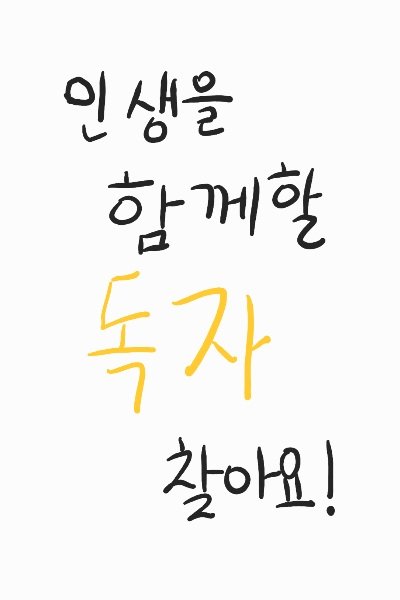 인생을
함께할
독자
찾아요!